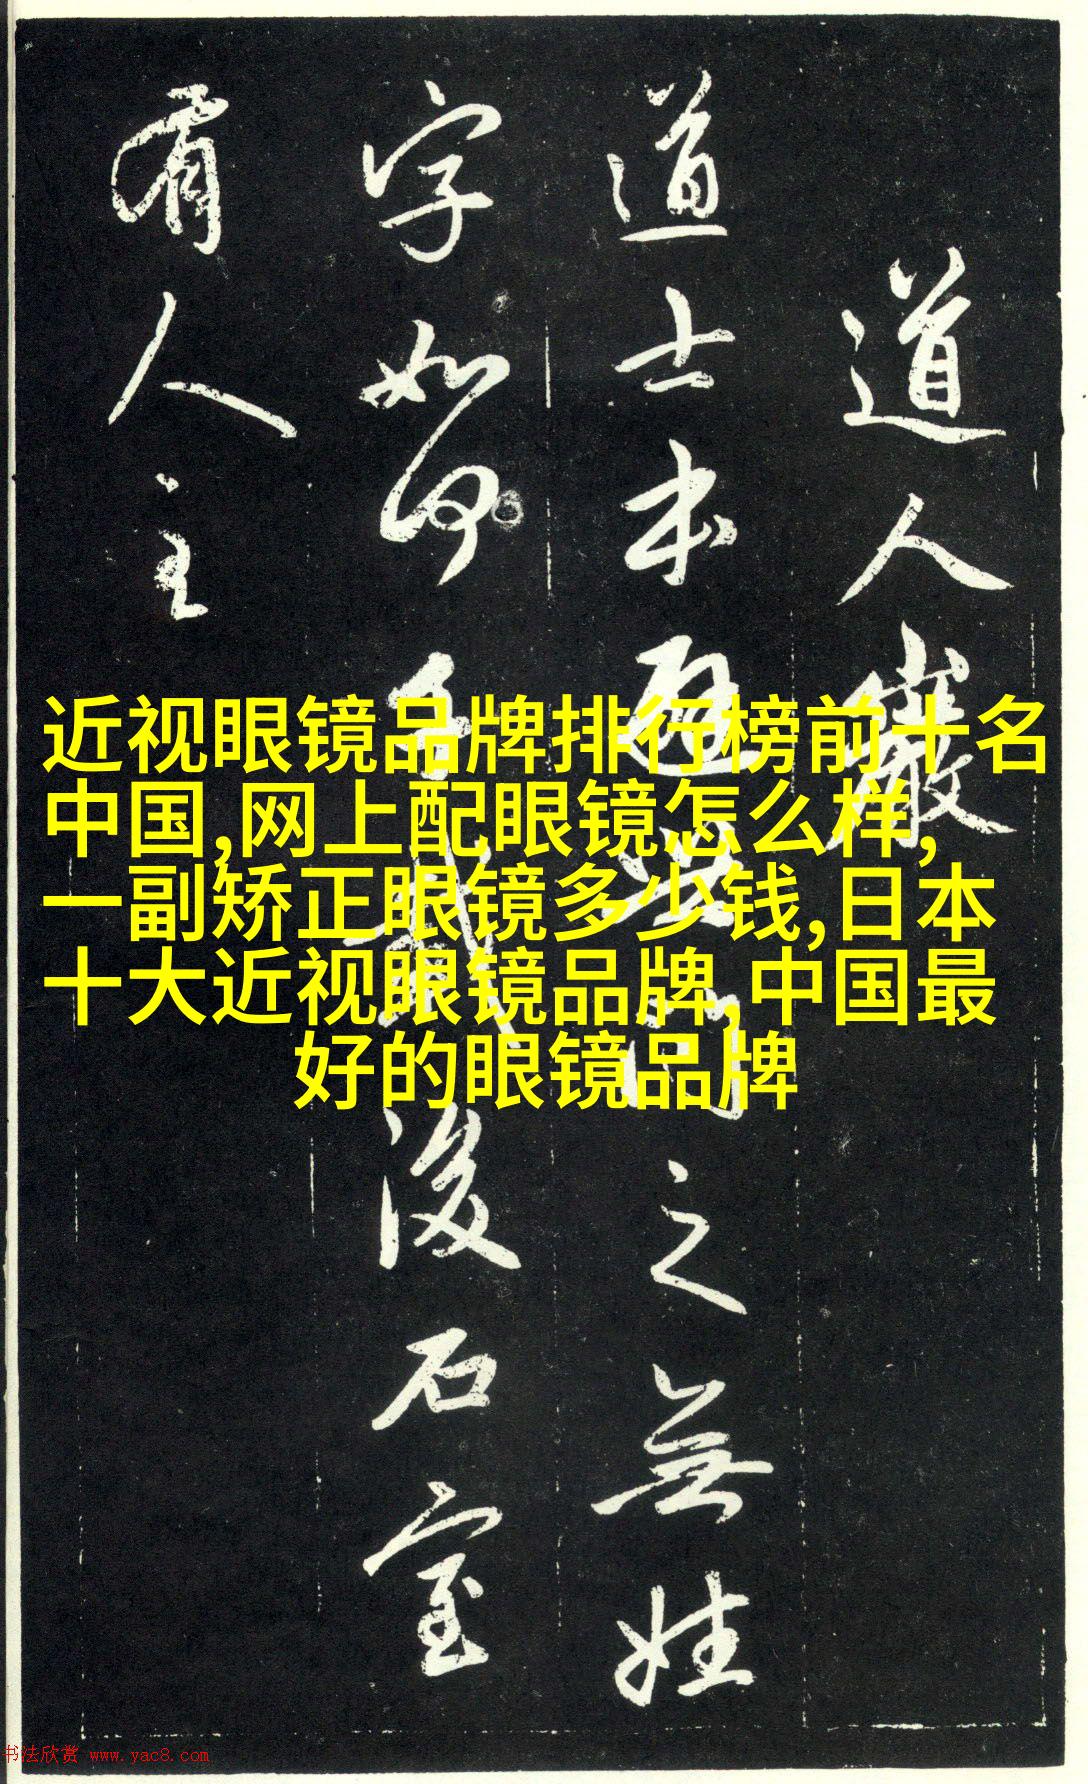 道人巖
道士本
之無姓
字如何
後石室
有人主
近视眼镜品牌排行榜前十名
中国,网上配眼镜怎么样,
一副矫正眼镜多少钱,日本
十大近视眼镜品牌,中国最
好的眼镜品牌
书法欣赏 www.yac8.com